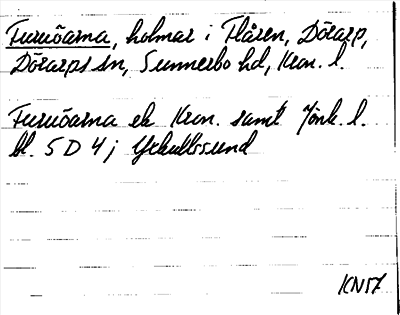 Furuöarna, holmar i Flåren, Dörarp,
Dörarps sn, Sunnerbo hd, Kron. l.
Furuöarna ek Kron. samt Jönk. l.
bl. 5 D 4 j Yxkullssund
KN57